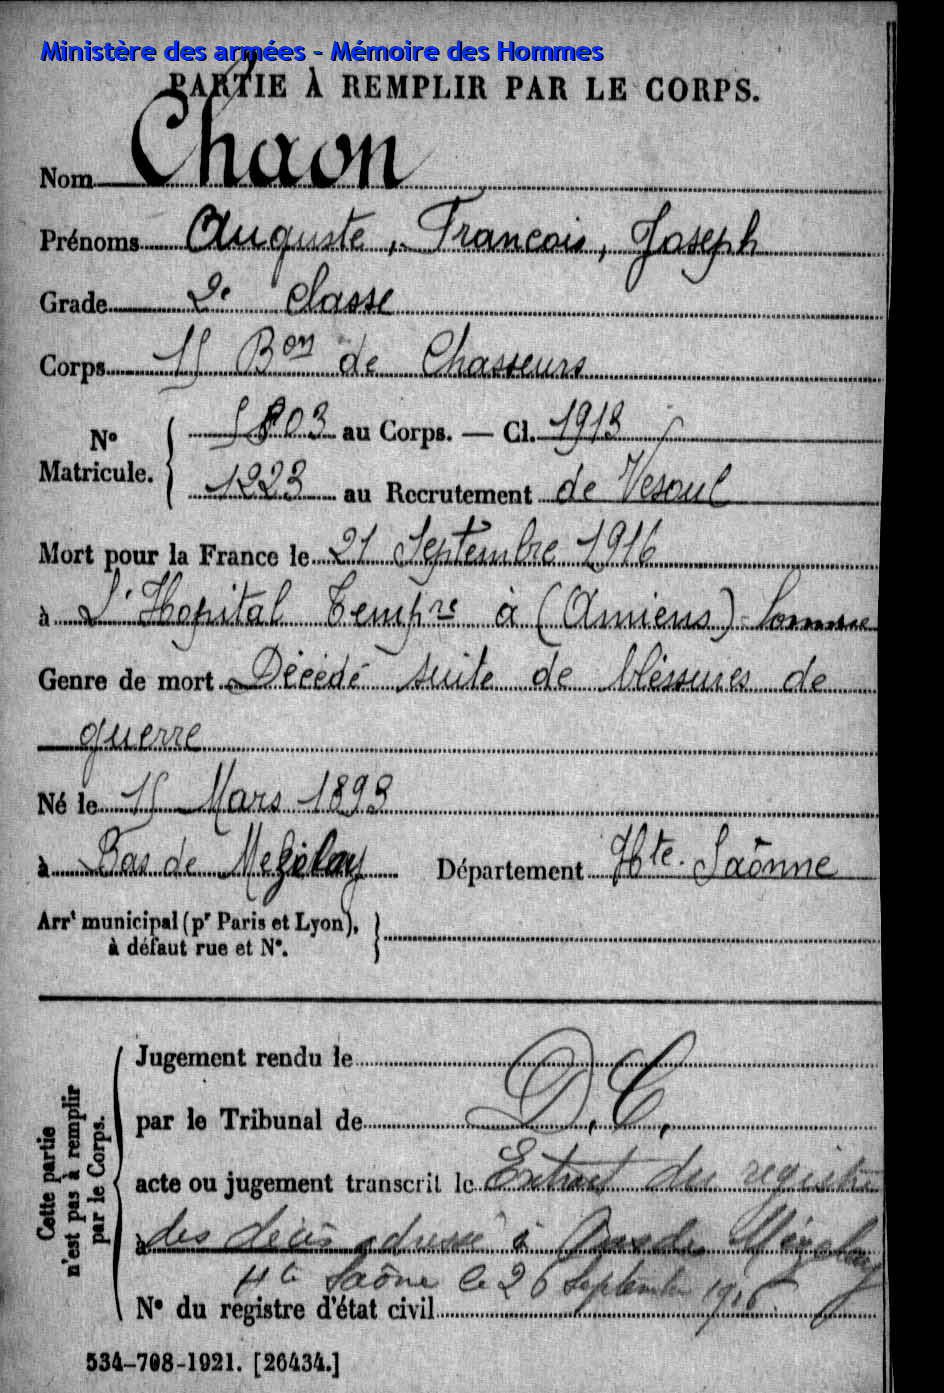 Ministère des armées - Mémoire des Hommes
PARTIE À REMPLIR PAR LE CORPS.
Nom Chaon
Prénoms Auguste, Francois, Joseph
Grade 2e classe
Corps 15 Bon de Chasseurs
No Matricule. 5803 au Corps. — Cl. 1913
1223 au Recrutement de Vesoul
Mort pour la France le 21 Septembre 1916
à L'Hopital Tempre à (Amiens) Somme
Genre de mort Décédé suite de bléssures de
guerre
Né le 15 Mars 1893
à Bas de Mezelay Département Hte. Saônne
Arrt municipal (pr Paris et Lyon),
à défaut rue et No.
Cette partie
n'est pas à remplir
par le Corps.
Jugement rendu le
par le Tribunal de D.C.
acte ou jugement transcrit le Extrait du registre
à des décès adressé à Mézelay
Hte Saône le 26 Septembre 1916
No du registre d'état civil
534-708-1921. [26434.]